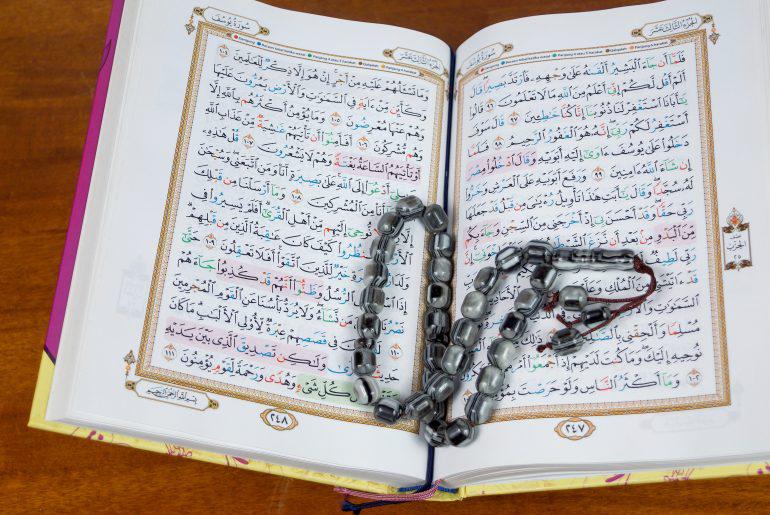 الجُزْءُ الثَّالِثُ عَشَرَ
سُورَةُ يُوسُفَ
فَلَمَّآ أَن جَآءَ ٱلْبَشِيرُ أَلْقَىٰهُ عَلَىٰ وَجْهِهِۦ فَٱرْتَدَّ بَصِيرًا قَالَ
أَلَمْ أَقُل لَّكُمْ إِنِّىٓ أَعْلَمُ مِنَ ٱللَّهِ مَا لَا تَعْلَمُونَ ٩٦ قَالُوا۟
يَٰٓأَبَانَا ٱسْتَغْفِرْ لَنَا ذُنُوبَنَآ إِنَّا كُنَّا خَٰطِـِٔينَ ٩٧ قَالَ سَوْفَ
أَسْتَغْفِرُ لَكُمْ رَبِّىٓ إِنَّهُۥ هُوَ ٱلْغَفُورُ ٱلرَّحِيمُ ٩٨ فَلَمَّا
دَخَلُوا۟ عَلَىٰ يُوسُفَ ءَاوَىٰٓ إِلَيْهِ أَبَوَيْهِ وَقَالَ ٱدْخُلُوا۟ مِصْرَ
إِن شَآءَ ٱللَّهُ ءَامِنِينَ ٩٩ وَرَفَعَ أَبَوَيْهِ عَلَى ٱلْعَرْشِ وَخَرُّوا۟
لَهُۥ سُجَّدًا وَقَالَ يَٰٓأَبَتِ هَٰذَا تَأْوِيلُ رُءْيَٰىَ مِن قَبْلُ قَدْ جَعَلَهَا
رَبِّى حَقًّا وَقَدْ أَحْسَنَ بِىٓ إِذْ أَخْرَجَنِى مِنَ ٱلسِّجْنِ وَجَآءَ بِكُم
مِّنَ ٱلْبَدْوِ مِنۢ بَعْدِ أَن نَّزَغَ
رَبِّى لَطِيفٌ
قَدْ ءَاتَيْتَنِى مِنَ ٱلْمُلْكِ وَعَلَّمْتَنِى
ٱلسَّمَٰوَٰتِ وَٱلْأَرْضِ
مُسْلِمًا وَأَلْحِقْنِى
نُوحِيهِ إِلَيْكَ وَمَا كُنتَ لَدَيْهِمْ إِذْ أَجْمَعُوٓا۟ أَمْرَهُمْ
١٠٢ وَمَآ أَكْثَرُ ٱلنَّاسِ وَلَوْ حَرَصْتَ بِمُؤْمِنِينَ
٢٤٧
سُورَةُ يُوسُفَ
الجُزْءُ الثَّالِثُ عَشَرَ
وَمَا تَسْـَٔلُهُمْ عَلَيْهِ مِنْ أَجْرٍ إِنْ هُوَ إِلَّا ذِكْرٌ لِّلْعَٰلَمِينَ ١٠٤
وَكَأَيِّن مِّنْ ءَايَةٍ فِى ٱلسَّمَٰوَٰتِ وَٱلْأَرْضِ يَمُرُّونَ عَلَيْهَا
وَهُمْ عَنْهَا مُعْرِضُونَ ١٠٥ وَمَا يُؤْمِنُ أَكْثَرُهُم بِٱللَّهِ إِلَّا
وَهُم مُّشْرِكُونَ ١٠٦ أَفَأَمِنُوٓا۟ أَن تَأْتِيَهُمْ غَٰشِيَةٌ مِّنْ عَذَابِ ٱللَّهِ
أَوْ تَأْتِيَهُمُ ٱلسَّاعَةُ بَغْتَةً وَهُمْ لَا يَشْعُرُونَ ١٠٧ قُلْ هَٰذِهِۦ
سَبِيلِىٓ أَدْعُوٓا۟ إِلَى ٱللَّهِ عَلَىٰ بَصِيرَةٍ أَنَا۠ وَمَنِ ٱتَّبَعَنِى وَسُبْحَٰنَ
أَنَا۠ مِنَ ٱلْمُشْرِكِينَ ١٠٨ وَمَآ أَرْسَلْنَا مِن قَبْلِكَ
إِلَّا نُّوحِىٓ إِلَيْهِم مِّنْ أَهْلِ ٱلْقُرَىٰٓ أَفَلَمْ يَسِيرُوا۟ فِى
ٱلْأَرْضِ فَيَنظُرُوا۟ كَيْفَ كَانَ عَٰقِبَةُ ٱلَّذِينَ مِن قَبْلِهِمْ
وَلَدَارُ خَيْرٌ لِّلَّذِينَ ٱتَّقَوْا۟ أَفَلَا تَعْقِلُونَ ١٠٩ حَتَّىٰٓ
إِذَا ٱلرُّسُلُ وَظَنُّوٓا۟ أَنَّهُمْ قَدْ كُذِبُوا۟ جَآءَهُمْ
نَصْرُنَا مَن نَّشَآءُ وَلَا يُرَدُّ بَأْسُنَا عَنِ ٱلْقَوْمِ ٱلْمُجْرِمِينَ
١١٠ فِى قَصَصِهِمْ عِبْرَةٌ لِّأُو۟لِى ٱلْأَلْبَٰبِ مَا كَانَ
حَدِيثًا وَلَٰكِن تَصْدِيقَ ٱلَّذِى بَيْنَ يَدَيْهِ
كُلِّ شَىْءٍ وَهُدًى وَرَحْمَةً لِّقَوْمٍ يُؤْمِنُونَ ١١١
٢٤٨